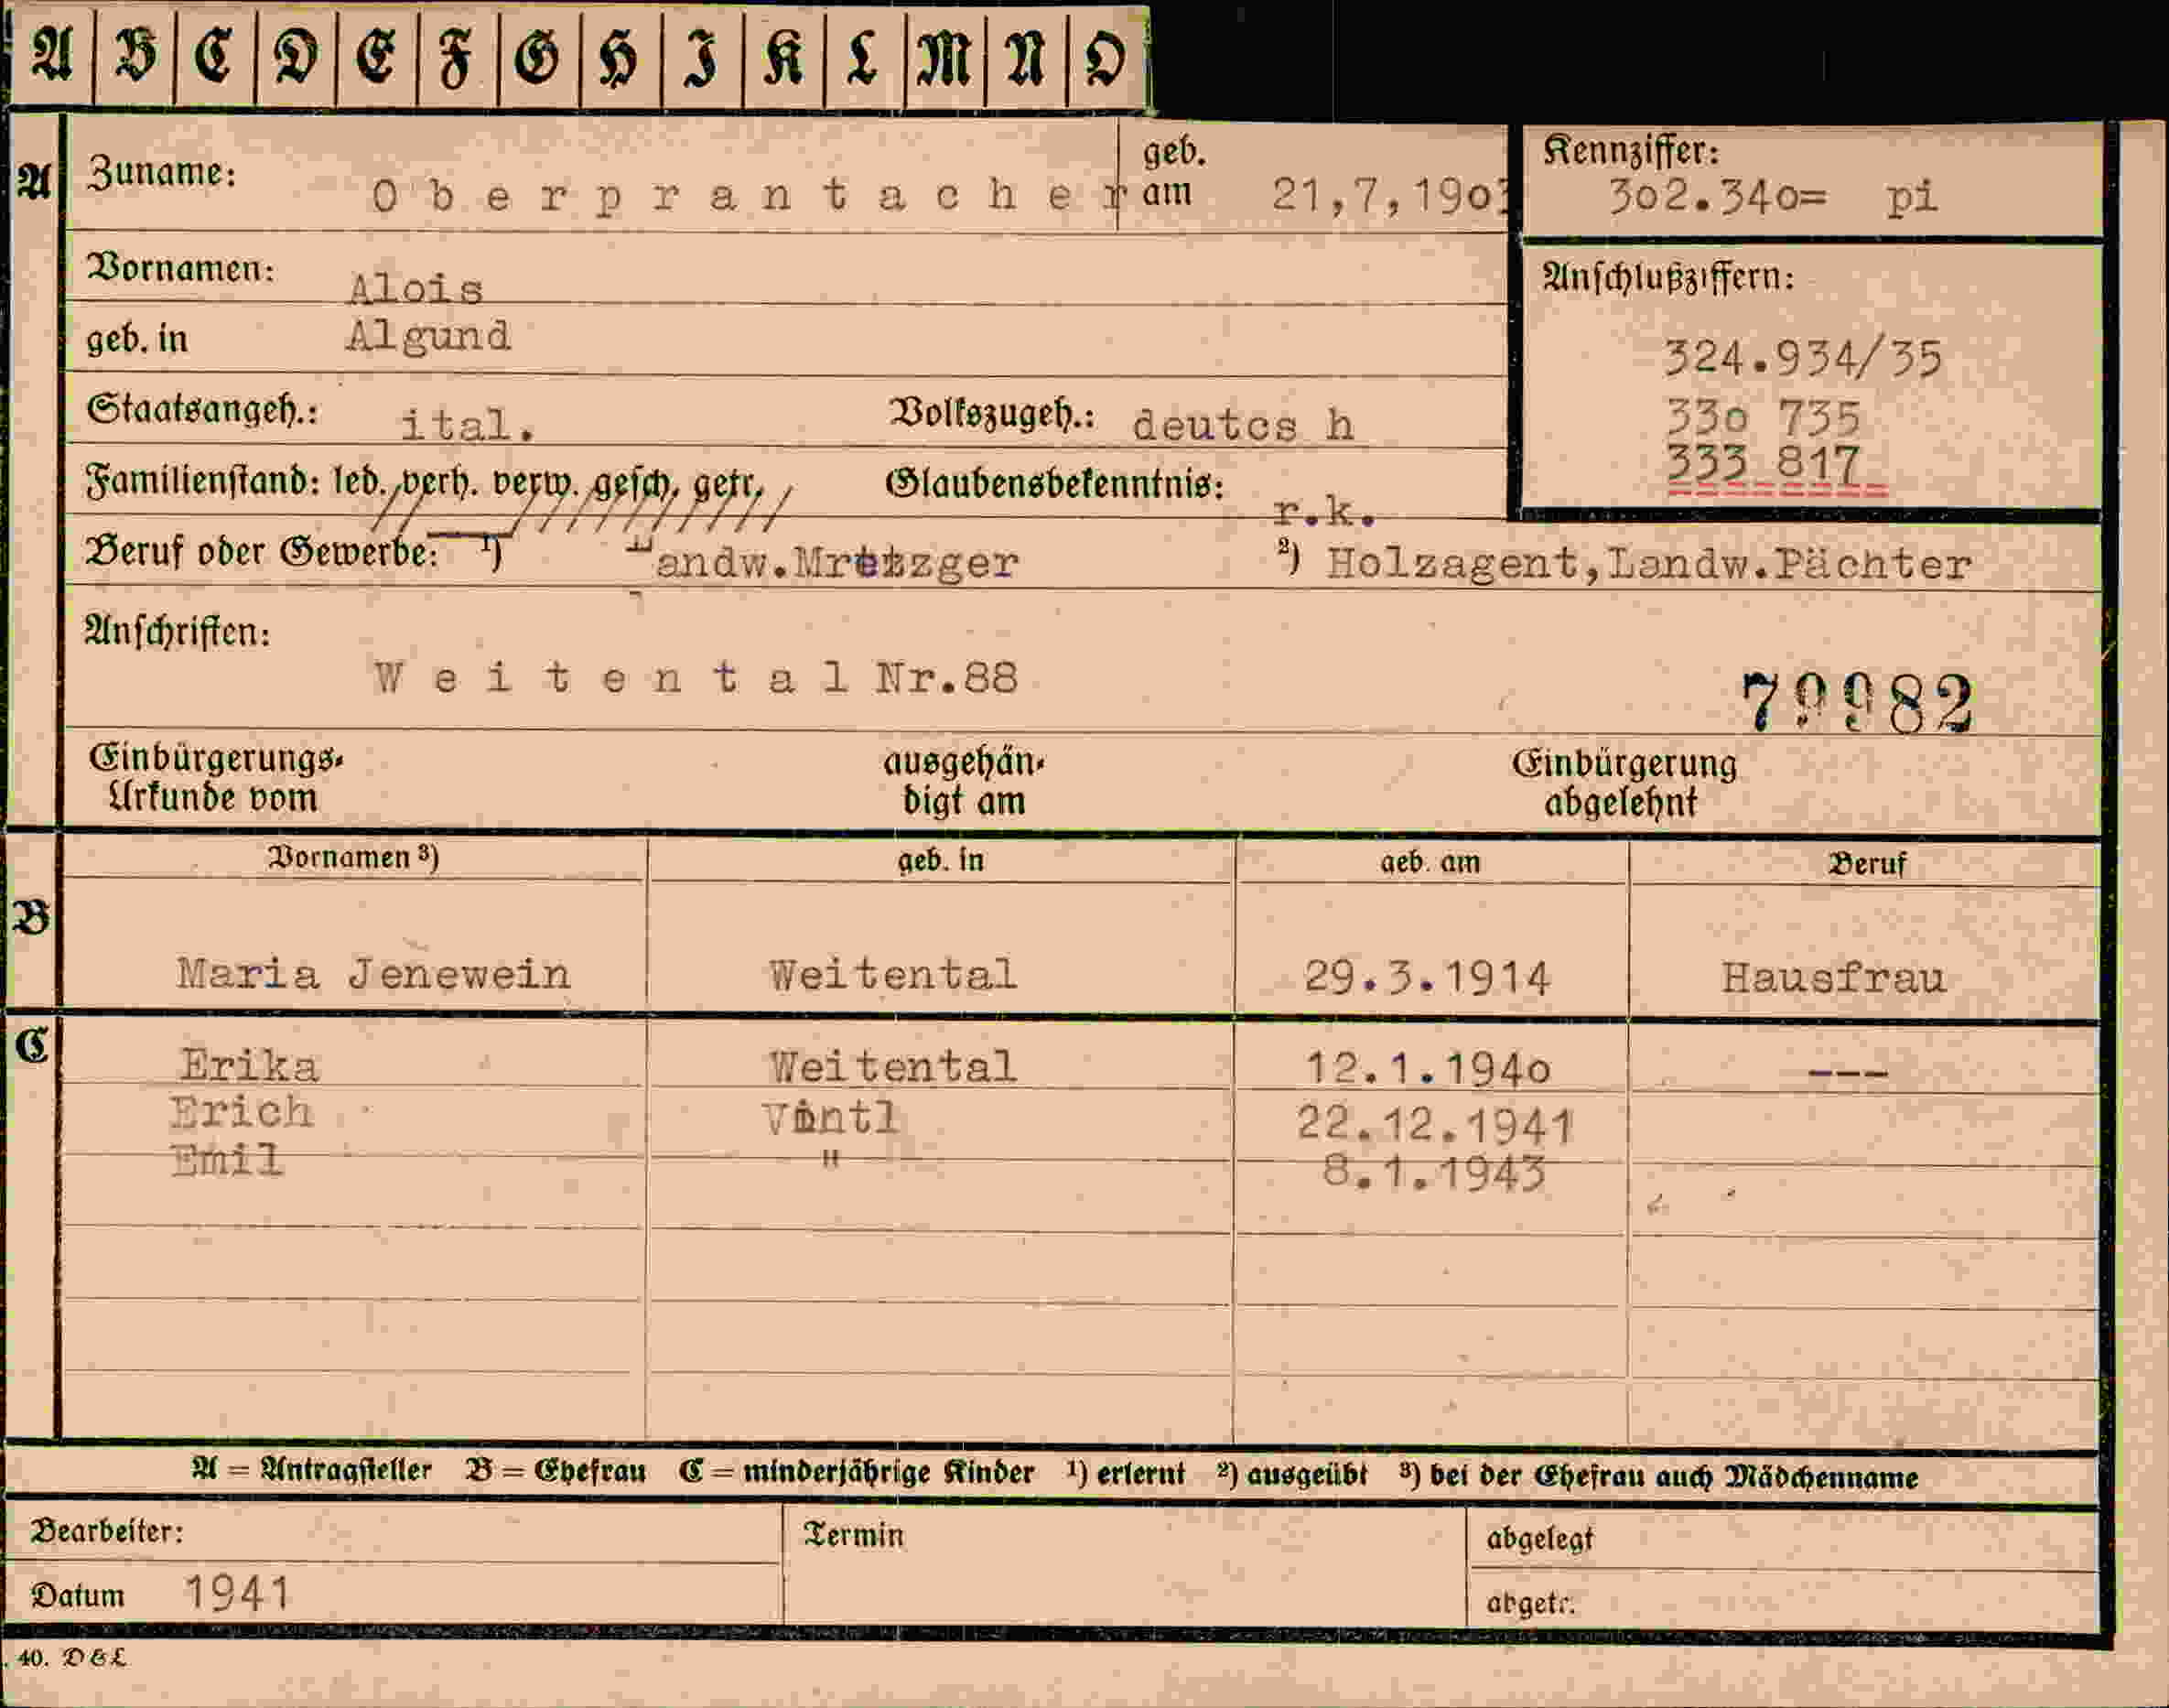 A B C D E F G H I K L M N O
A Zuname: Oberprantacher geb. am 21,7,1903 Kennziffer: 302.340= pi
Vornamen: Alois
geb. in Algund
Anschlußziffern:
324.934/35
330 735
333 817
Staatsangeh.: ital. Volkszugeh.: deutcs h
Familienstand: led. verh. verw. gesch. getr. Glaubensbekenntnis: r.k.
Beruf oder Gewerbe: 1) Landw. 2) Holzagent,Landw.Pächter
Anschriften:
Weitental Nr.88
79982
Einbürgerungs-Urkunde vom ausgehändigt am Einbürgerung abgelehnt
Vornamen 3) geb. in geb. am Beruf
B Maria Jenewein Weitental 29.3.1914 Hausfrau
C Erika Weitental 12.1.1940 ---
Erich Vintl 22.12.1941
Emil " 8.1.1943
A = Antragsteller B = Ehefrau C = minderjährige Kinder 1) erlernt 2) ausgeübt 3) bei der Ehefrau auch Mädchenname
Bearbeiter: Termin abgelegt
Datum 1941 abgetr.
40. D&L